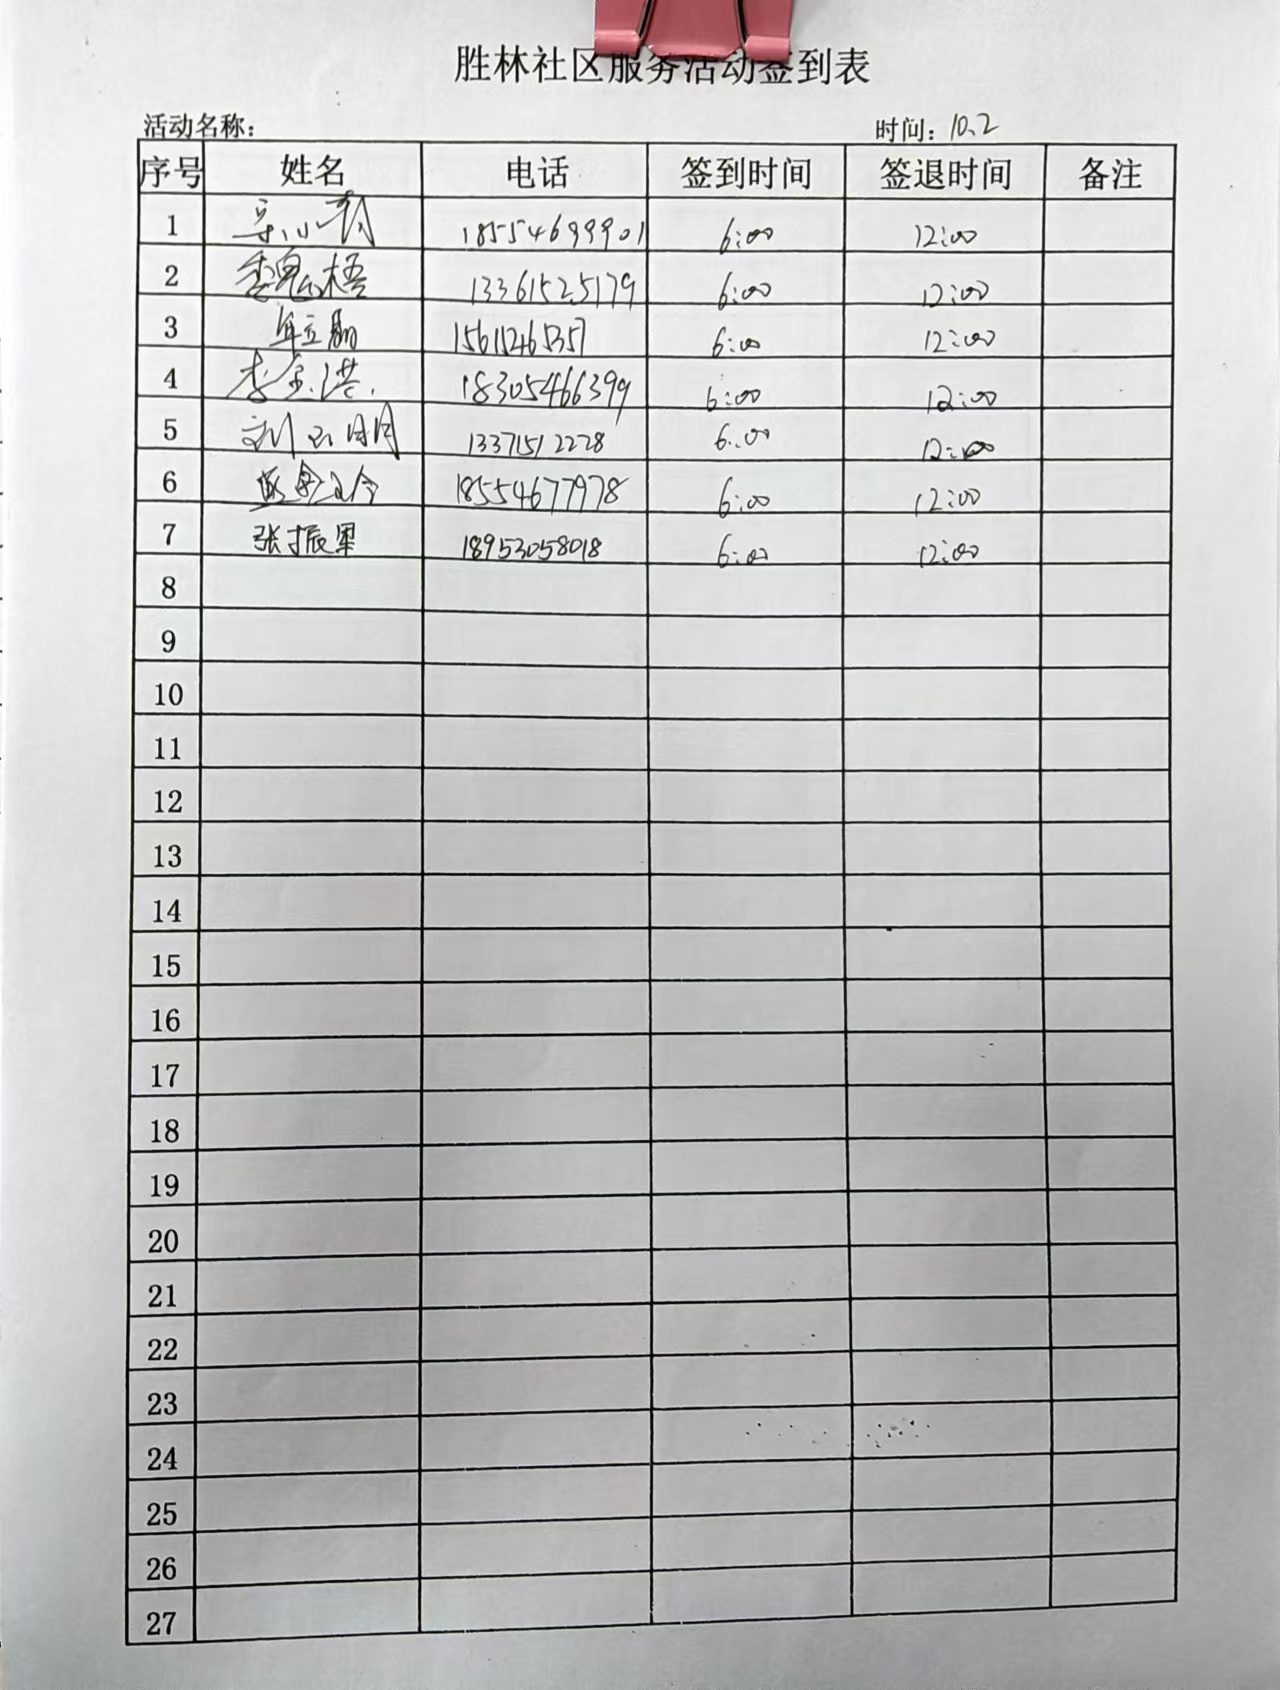 胜林社区服务活动签到表
活动名称: 时间: 10.2
序号 姓名 电话 签到时间 签退时间 备注
1 18554699901 6:00 12:00
2 13361525179 6:00 12:00
3 15611246535 6:00 12:00
4 李金洪 18305466399 6:00 12:00
5 刘玉明 13371512228 6:00 12:00
6 18554677978 6:00 12:00
7 张振军 18953058018 6:00 12:00
8
9
10
11
12
13
14
15
16
17
18
19
20
21
22
23
24
25
26
27